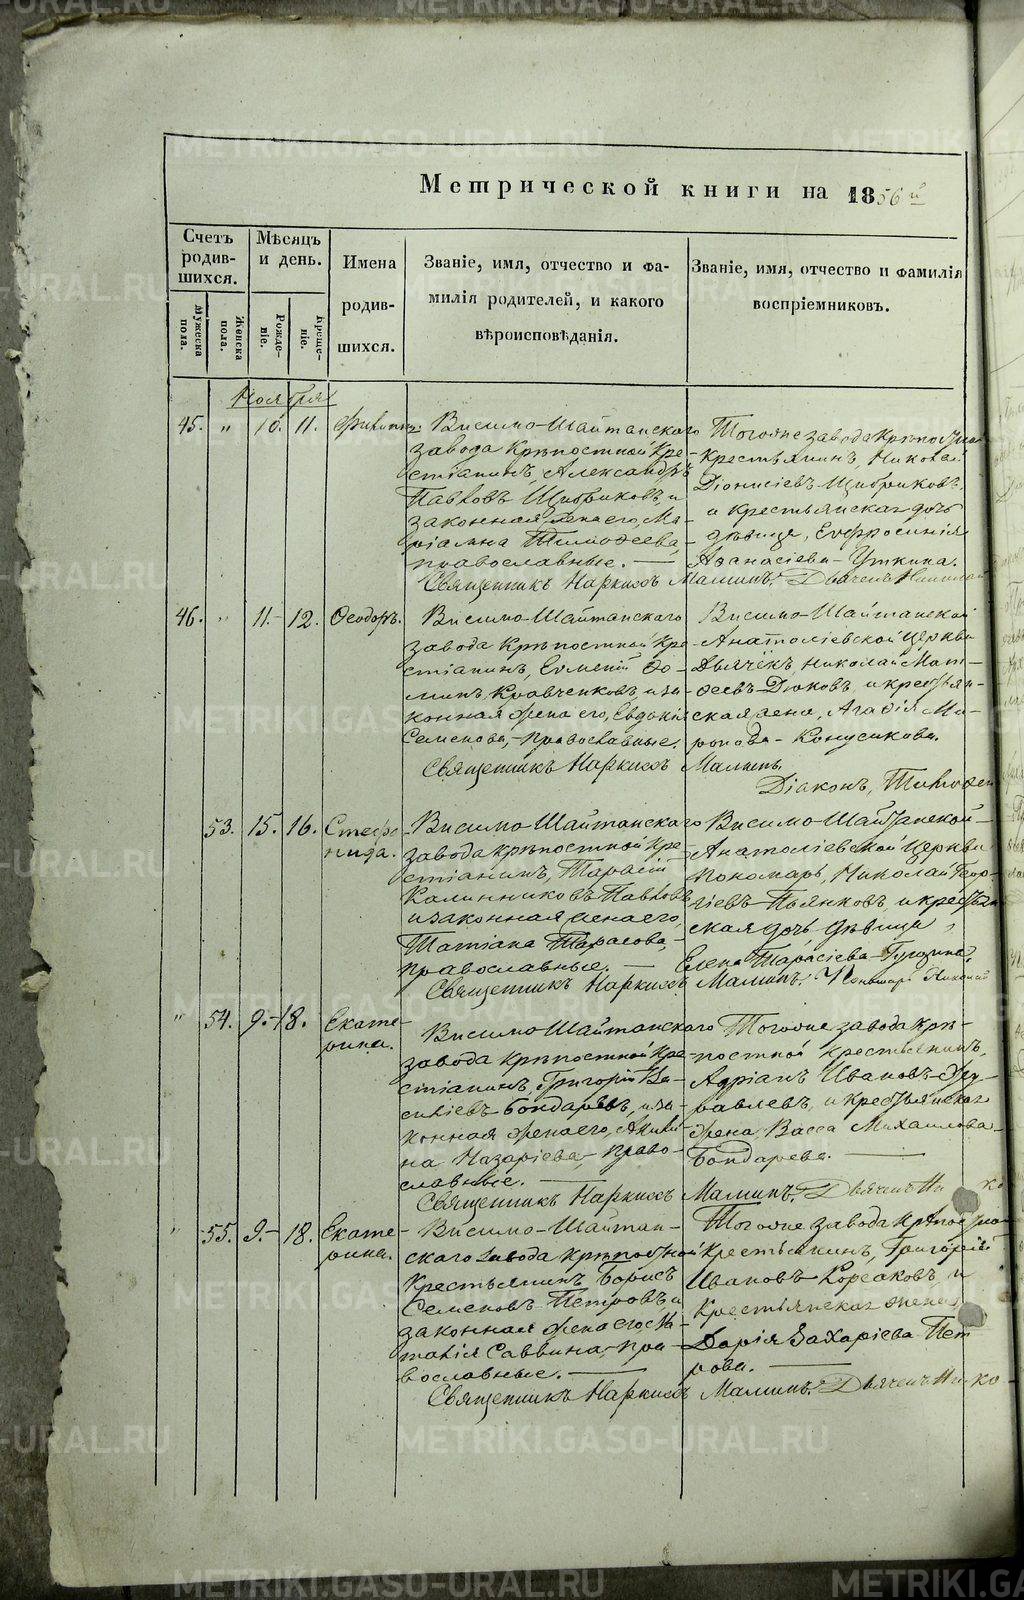 Метрической книги на 1856й
Счетъ родив-шихся.
Мѣсяцъ и день.
Имена родив-шихся.
Званіе, имя, отчество и фа-
милія родителей, и какого
вѣроисповѣданія.
Званіе, имя, отчество и фамилія
воспріемниковъ.
Мужеска пола.
Женска пола.
Рожде-ніе.
Креще-ніе.
Ноября
45. " 10. 11. Филиппъ.
Висимо-Шайтанскаго
завода крѣпостной кре-
стіанинъ, Александръ
Павловъ Щибриковъ, и
законная жена его, Ма-
ріамна Тимофеева,
православные. —
Тогоже завода крѣпостной
крестьянинъ, Николай
Діонисіевъ Щибриковъ,
и крестьянская дочь
дѣвица, Евфросинія
Афанасіева Уткина.
Священникъ Наркисъ Малинъ. Дьячекъ Николай
46. " 11. 12. Феодоръ.
Висимо-Шайтанскаго
завода крѣпостной кре-
стіанинъ, Евмений Фо-
минъ Кравченковъ, и за-
конная жена его, Евдокія
Семенова, православные.
Висимо-Шайтанской
Анатоліевской церкви
Дьячекъ, Николай Мат-
феевъ Дюковъ, и крестьян-
ская жена, Агафія Ми-
ронова
Священникъ Наркисъ Малинъ.
Діаконъ,
53. 15. 16. Стефа-
нида.
Висимо-Шайтанскаго
завода крѣпостной кре-
стіанинъ, Тарасій
Калинниковъ Павловъ
и законная жена его,
Татіана Тарасова,
православные. —
Висимо-Шайтанской
Анатоліевской церкви
пономарь, Николай Геор-
гіевъ Пьянковъ, и крестьян-
ская дочь дѣвица,
Елена Тарасіева
Священникъ Наркисъ Малинъ. Пономарь Николай
" 54. 9. 18. Екате-
рина.
Висимо-Шайтанскаго
завода крѣпостной кре-
стіанинъ, Григорій Ва-
силіевъ Бондаревъ, и за-
конная жена его, Акили-
на Назаріева, право-
славные. —
Тогоже завода крѣ-
постной крестьянинъ,
Адріанъ Ивановъ Жу-
равлевъ, и крестьянская
жена, Васса Михаилова
Бондарева. —
Священникъ Наркисъ Малинъ. Дьячекъ Ни ко
" 55. 9. 18. Екате-
рина.
Висимо-Шайтан-
скаго завода крѣпостной
крестьянинъ Борисъ
Семеновъ Петровъ и
законная жена его, На-
талія Саввина, пра-
вославные. —
Тогоже завода крѣпостной
крестьянинъ, Григорій
Ивановъ Корсаковъ, и
крестьянская жена
Дарія Захаріева Пет
рова. —
Священникъ Наркисъ Малинъ. Дьячекъ Нико-
METRIKI.GASO-URAL.RU